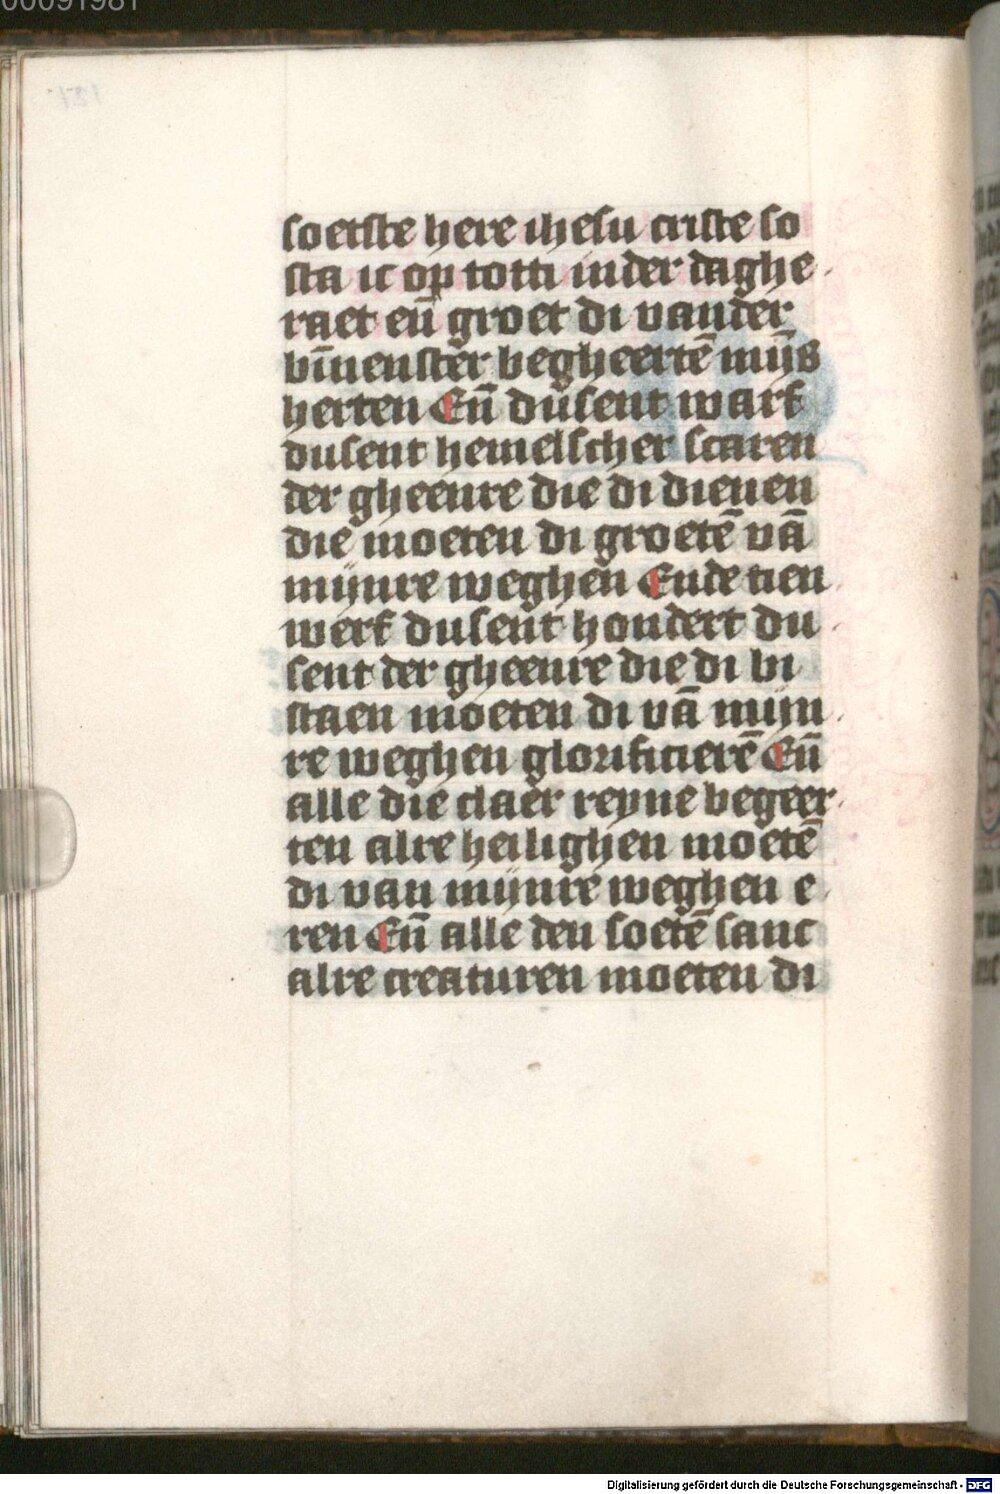 00091981
soetste here ihesu criste so
sta ic op totti inder daghe
raet eñ groet di vander
bīnenster begheertē mijs
herten Eñ dusent warf
dusent hemelscher scaren
der gheenre die di dienen
die moeten di groetē vā
mijnre weghen Ende tien
werf dusent hondert du
sent der gheenre die di bi
staen moeten di vā mijn
re weghen glorificierē Eñ
alle die claer reyne begeer
ten alre heilighen moetē
di van mijnre weghen e
ren Eñ alle den soetē sanc
alre creaturen moeten di
Digitalisierung gefördert durch die Deutsche Forschungsgemeinschaft - DFG